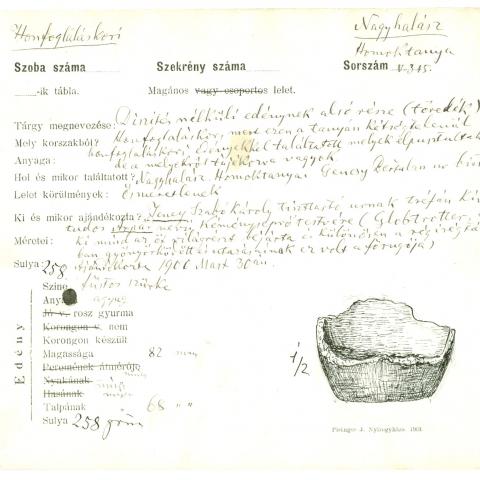 Honfogláláskori
Nagyhalász
Homoktanya
Szoba száma
Szekrény száma
Sorszám V.345.
-ik tábla.
Magános vagy csoportos lelet.
Tárgy megnevezése: Díszítés nélküli edénynek alsó része (töredék)
Mely korszakból? Honfogláláskori, mert ezen a tanyán kétségtelenül
honfogláláskori edényekhez találtatott melyek elpusztultak
Anyaga: de a melyekről tájékozva vagyok
Hol és mikor találtatott? Nagyhalász Homoktanyai Gencsy Bertalan
Lelet körülmények: Ismeretlenek
Ki és mikor ajándékozta? Jeney Szabó Károly tiszttartó urnak tréfán
tudós Árpád nevű Kéményseprő testvére (Globtrotter,
Méretei: ki mind az öt világrészt bejárta és különösen a régiségek
ban gyönyörködött és utazásainak ez volt a
Sulya: 258 Ajándékozta 1900 Mart 30án.
Edény
Szine füstös szürke
Anyaga agyag
Jó v. rosz gyurma
Korongon v. nem
Korongon készült
Magassága 82 mm
Peremének átmérője
Nyakának
Hasának
Talpának 68 " "
Sulya 258 gram
1/2
Piringer J. Nyiregyháza 1901.